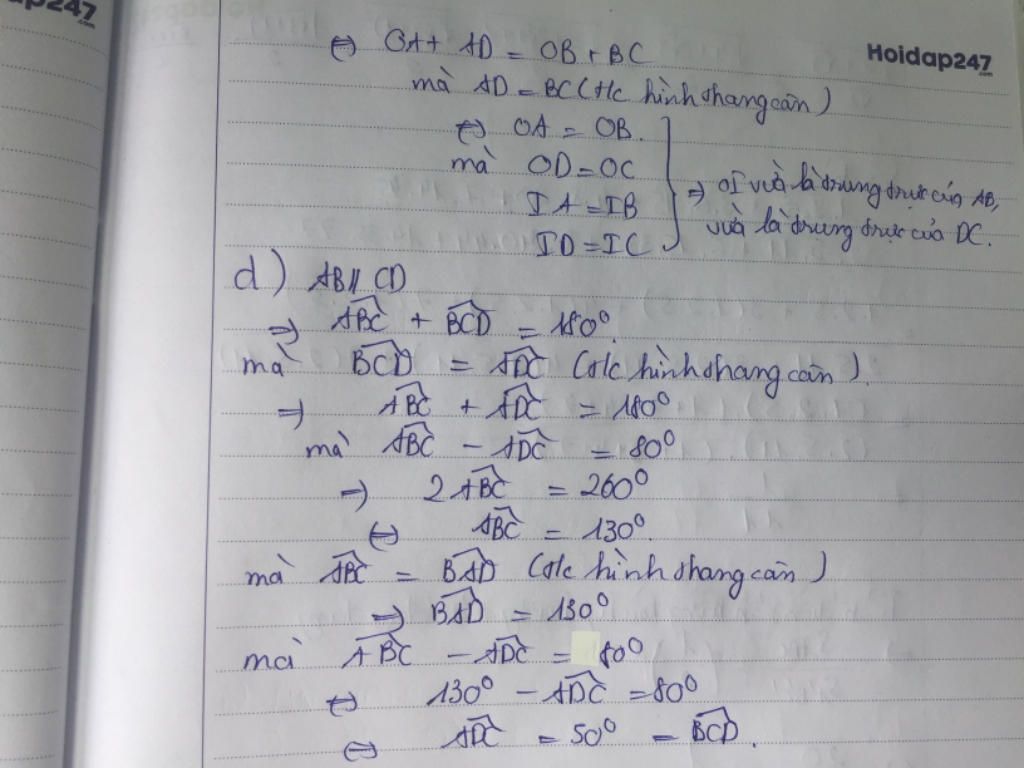 ap247
.com
Hoidap247
.com
⇔ OA + AD = OB + BC
mà AD = BC (t/c hình thang cân)
⇔ OA = OB.
mà OD = OC
IA = IB
ID = IC
⇒ OI vừa là trung trực của AB,
vừa là trung trực của DC.
d) AB // CD
⇒ \widehat{ABC} + \widehat{BCD} = 180°.
mà \widehat{BCD} = \widehat{ADC} (t/c hình thang cân).
⇒ \widehat{ABC} + \widehat{ADC} = 180°
mà \widehat{ABC} - \widehat{ADC} = 80°
⇒ 2\widehat{ABC} = 260°
⇔ \widehat{ABC} = 130°.
mà \widehat{ABC} = \widehat{BAD} (t/c hình thang cân)
⇒ \widehat{BAD} = 130°
mà \widehat{ABC} - \widehat{ADC} = 80°
⇔ 130° - \widehat{ADC} = 80°
⇔ \widehat{ADC} = 50° = \widehat{BCD}.